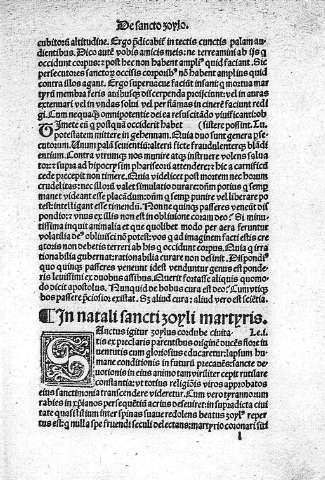 De sancto zoylo.
cubitorũ altitudine. Ergo p̃dicabit̃ in tectis cunctis palam au
dientibus. Dico autẽ vobis amicis meis: ne terreamini ab ijs q
occidunt corpus: post hec non habent ampliꝰ quid faciant. Sic
persecutores sanctoꝝ occisis corporibꝰ nõ habent amplius quid
contra illos agant. Ergo supervacue faciũt insani: q̃ mortua mar
tyrũ membra feris auibusqꝫ discerpenda proijciunt: vel in auras
extenuari vel in vndas solui vel per flamas in cinerẽ faciunt redi
gi. Cum nequaqꝫ omnipotentie dei ea resuscitãdo viuificanti ob
Timete eũ q postquã occiderit habet (sistere possint. Lu.
potestatem mittere in gehennam. Quia duo sunt genera pse
cutorum. Unum palã seuientiũ: alterũ ficte fraudulenterqꝫ blãdi
entium. Contra vtrumqꝫ nos munire atqꝫ instruere volens salua
tor: supra ad hipocrysim phariseorũ attendere: hic a carnificũ
cede precepit non timere. Quia videlicet post mortem nec horum
crudelitas: nec illorũ valet simulatio durare:
manet videant esse placãdum: q semp punire vel liberare po
test: intelligant esse timendũ. Nonne quinqꝫ passeres veneũt di
pondio: vnus ex illis non est in obliuione coram deo? Si minu
tissima inquit animalia et que quolibet modo per aera feruntur
volatilia deꝰ obliuisci nõ potest: vos q ad imaginem facti estis cre
atoris non debetis terreri ab his q occidunt corpus. Quia q irra
tionabilia gubernat: rationabilia curare non desinit. Dispõdi
quo quinqꝫ passeres veneunt idest vendunt genus est ponde
ris leuissimi ex duobus assibus. Querit fortasse aliquis quomo
do dicit apostolus. Nunquid de bobus cura est deo? Cum vtiqꝫ
bos passere p̃ciosios existat. Sꝫ aliud cura: aliud vero est sciẽtia.
¶ In natali sancti zoyli martyris.
SAnctus igitur zoylus cordube ciuita Le.i.
tis ex preclaris parentibus originẽ ducẽs floret in
uentutis cum gloriosius educaretur: lapsum hu
mane conditionis in futurũ precauẽs: sancte de
uotionis in eius animo tam viriliter cepit rutilare
constantia: vt totius religiõis viros approbatos
eius sanctimonia transcendere videretur. Cum vero tyrannorum
rabies in xp̃ianos persequẽtiũ acriꝰ deseuiret: in supradicta ciui
tate quasi lilium inter spinas suaue redolens beatus zoylꝰ reper
tus est: q nulla spe fruendi seculi delectans: martyrio coronari sui